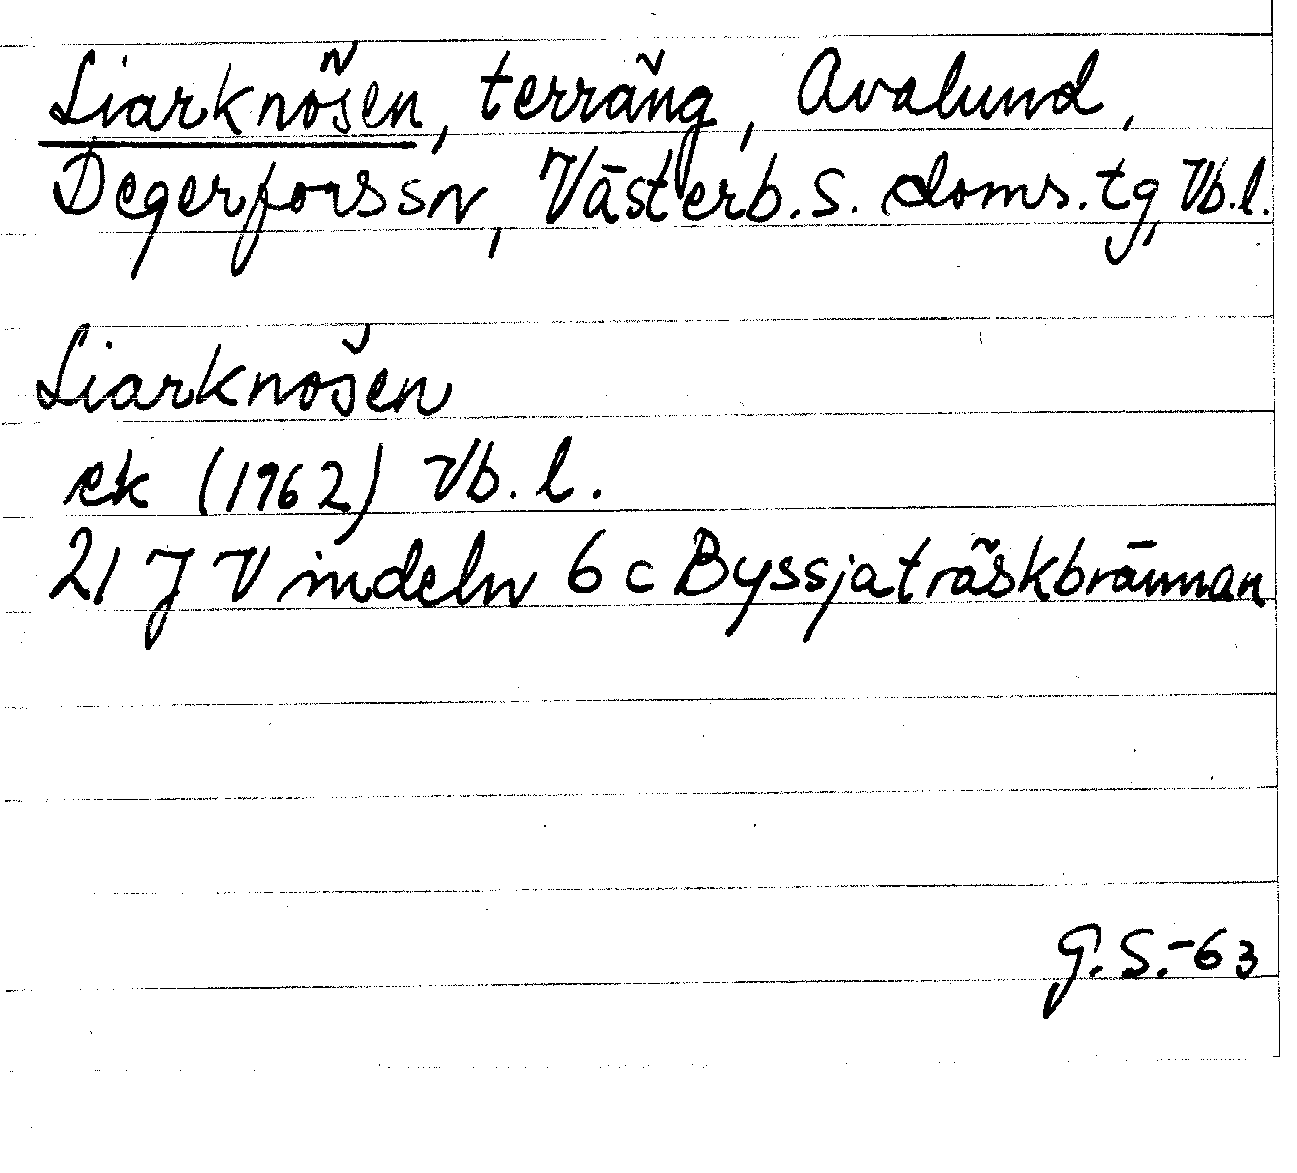 Liarknösen, terräng, Avalund,
Degerfors sn, Västerb. s. doms. tg, Vb. l.
Liarknösen
ek (1962) Vb. l.
21 J Vindeln 6 c Byssjaträskbrännan
G. S. -63